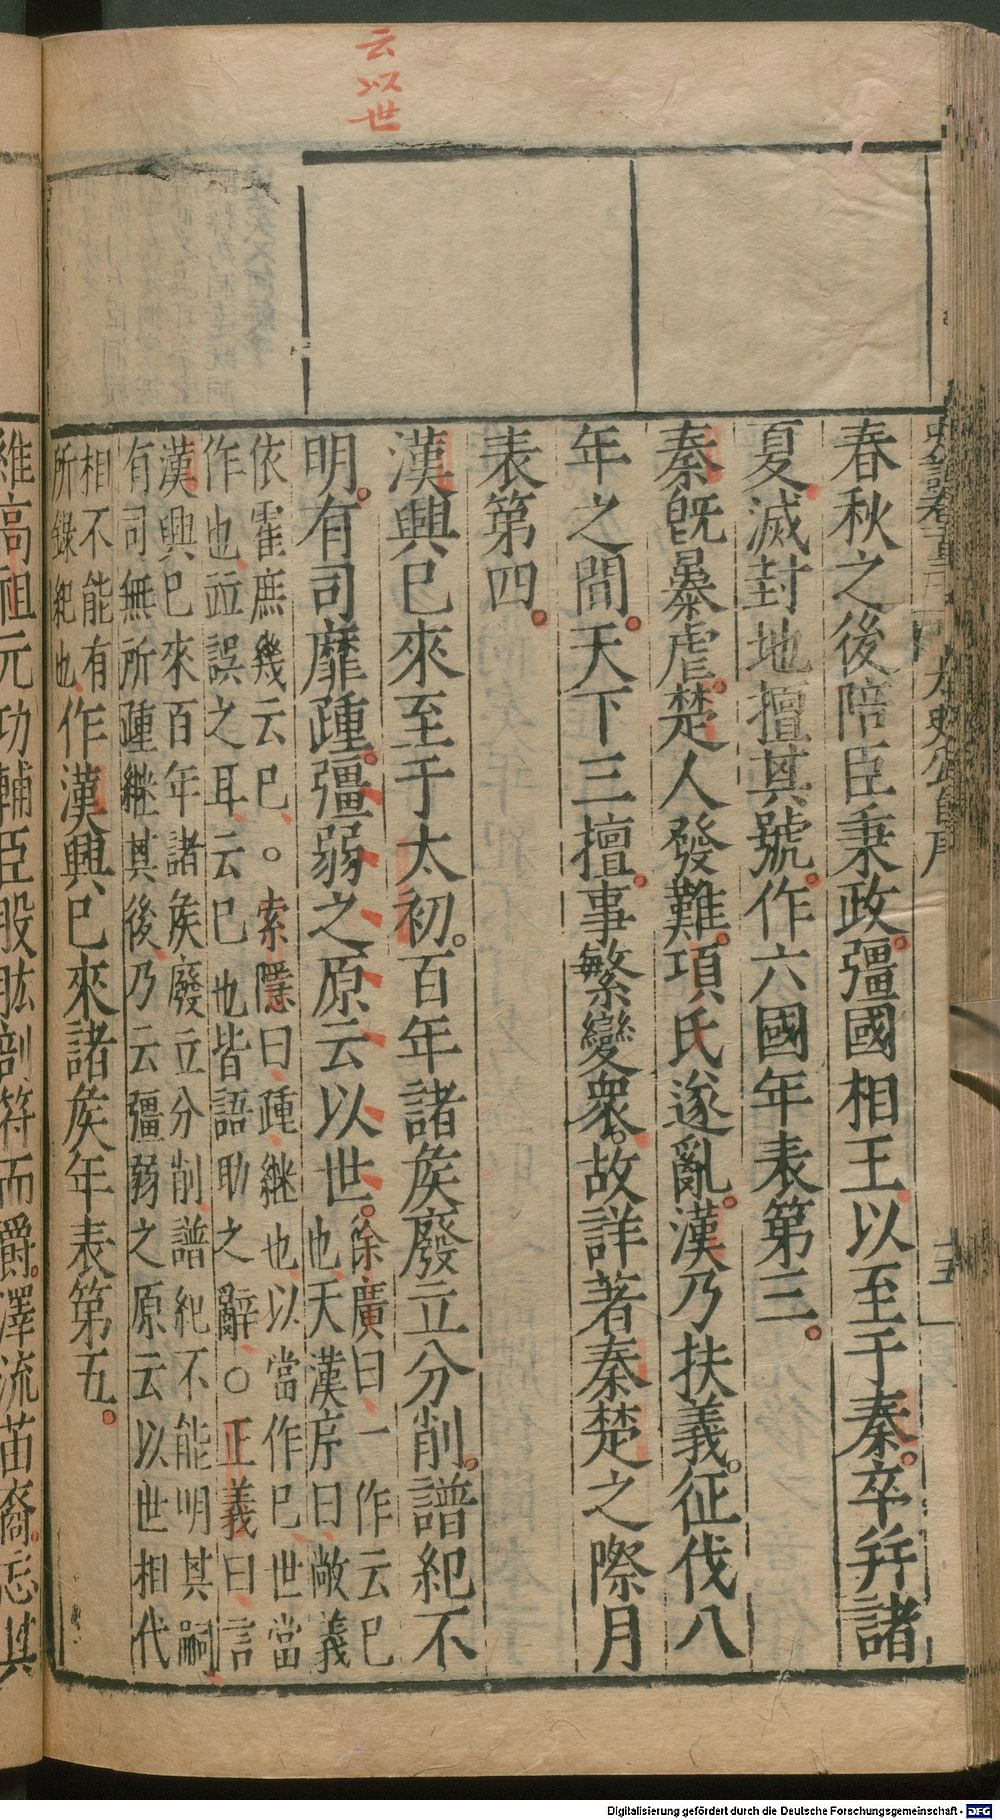 云以世
春秋之後陪臣秉政。彊國相王以至于秦。卒幷諸
夏滅封地擅其號。作六國年表第三。
秦旣暴虐。楚人發難。項氏遂亂。漢乃扶義。征伐八
年之間。天下三擅。事繁變衆。故詳著秦楚之際月
表第四。
漢興已來至于太初。百年諸矦廢立分削。譜紀不
明。有司靡踵。彊弱之原云以世。
徐廣曰一作云已
也天漢序曰敞義
依霍庶幾云已。○索隱曰踵継也以當作已世當
作也並誤之耳云已也皆語助之辭○正義曰言
漢興已來百年諸矦廢立分削譜紀不能明其嗣
有司無所踵継其後乃云彊弱之原云以世相代
相不能有
所錄紀也
作漢興已來諸矦年表第五。
維高祖元功輔臣股肱剖符而爵。澤流苗裔。忘其
Digitalisierung gefördert durch die Deutsche Forschungsgemeinschaft - DFG